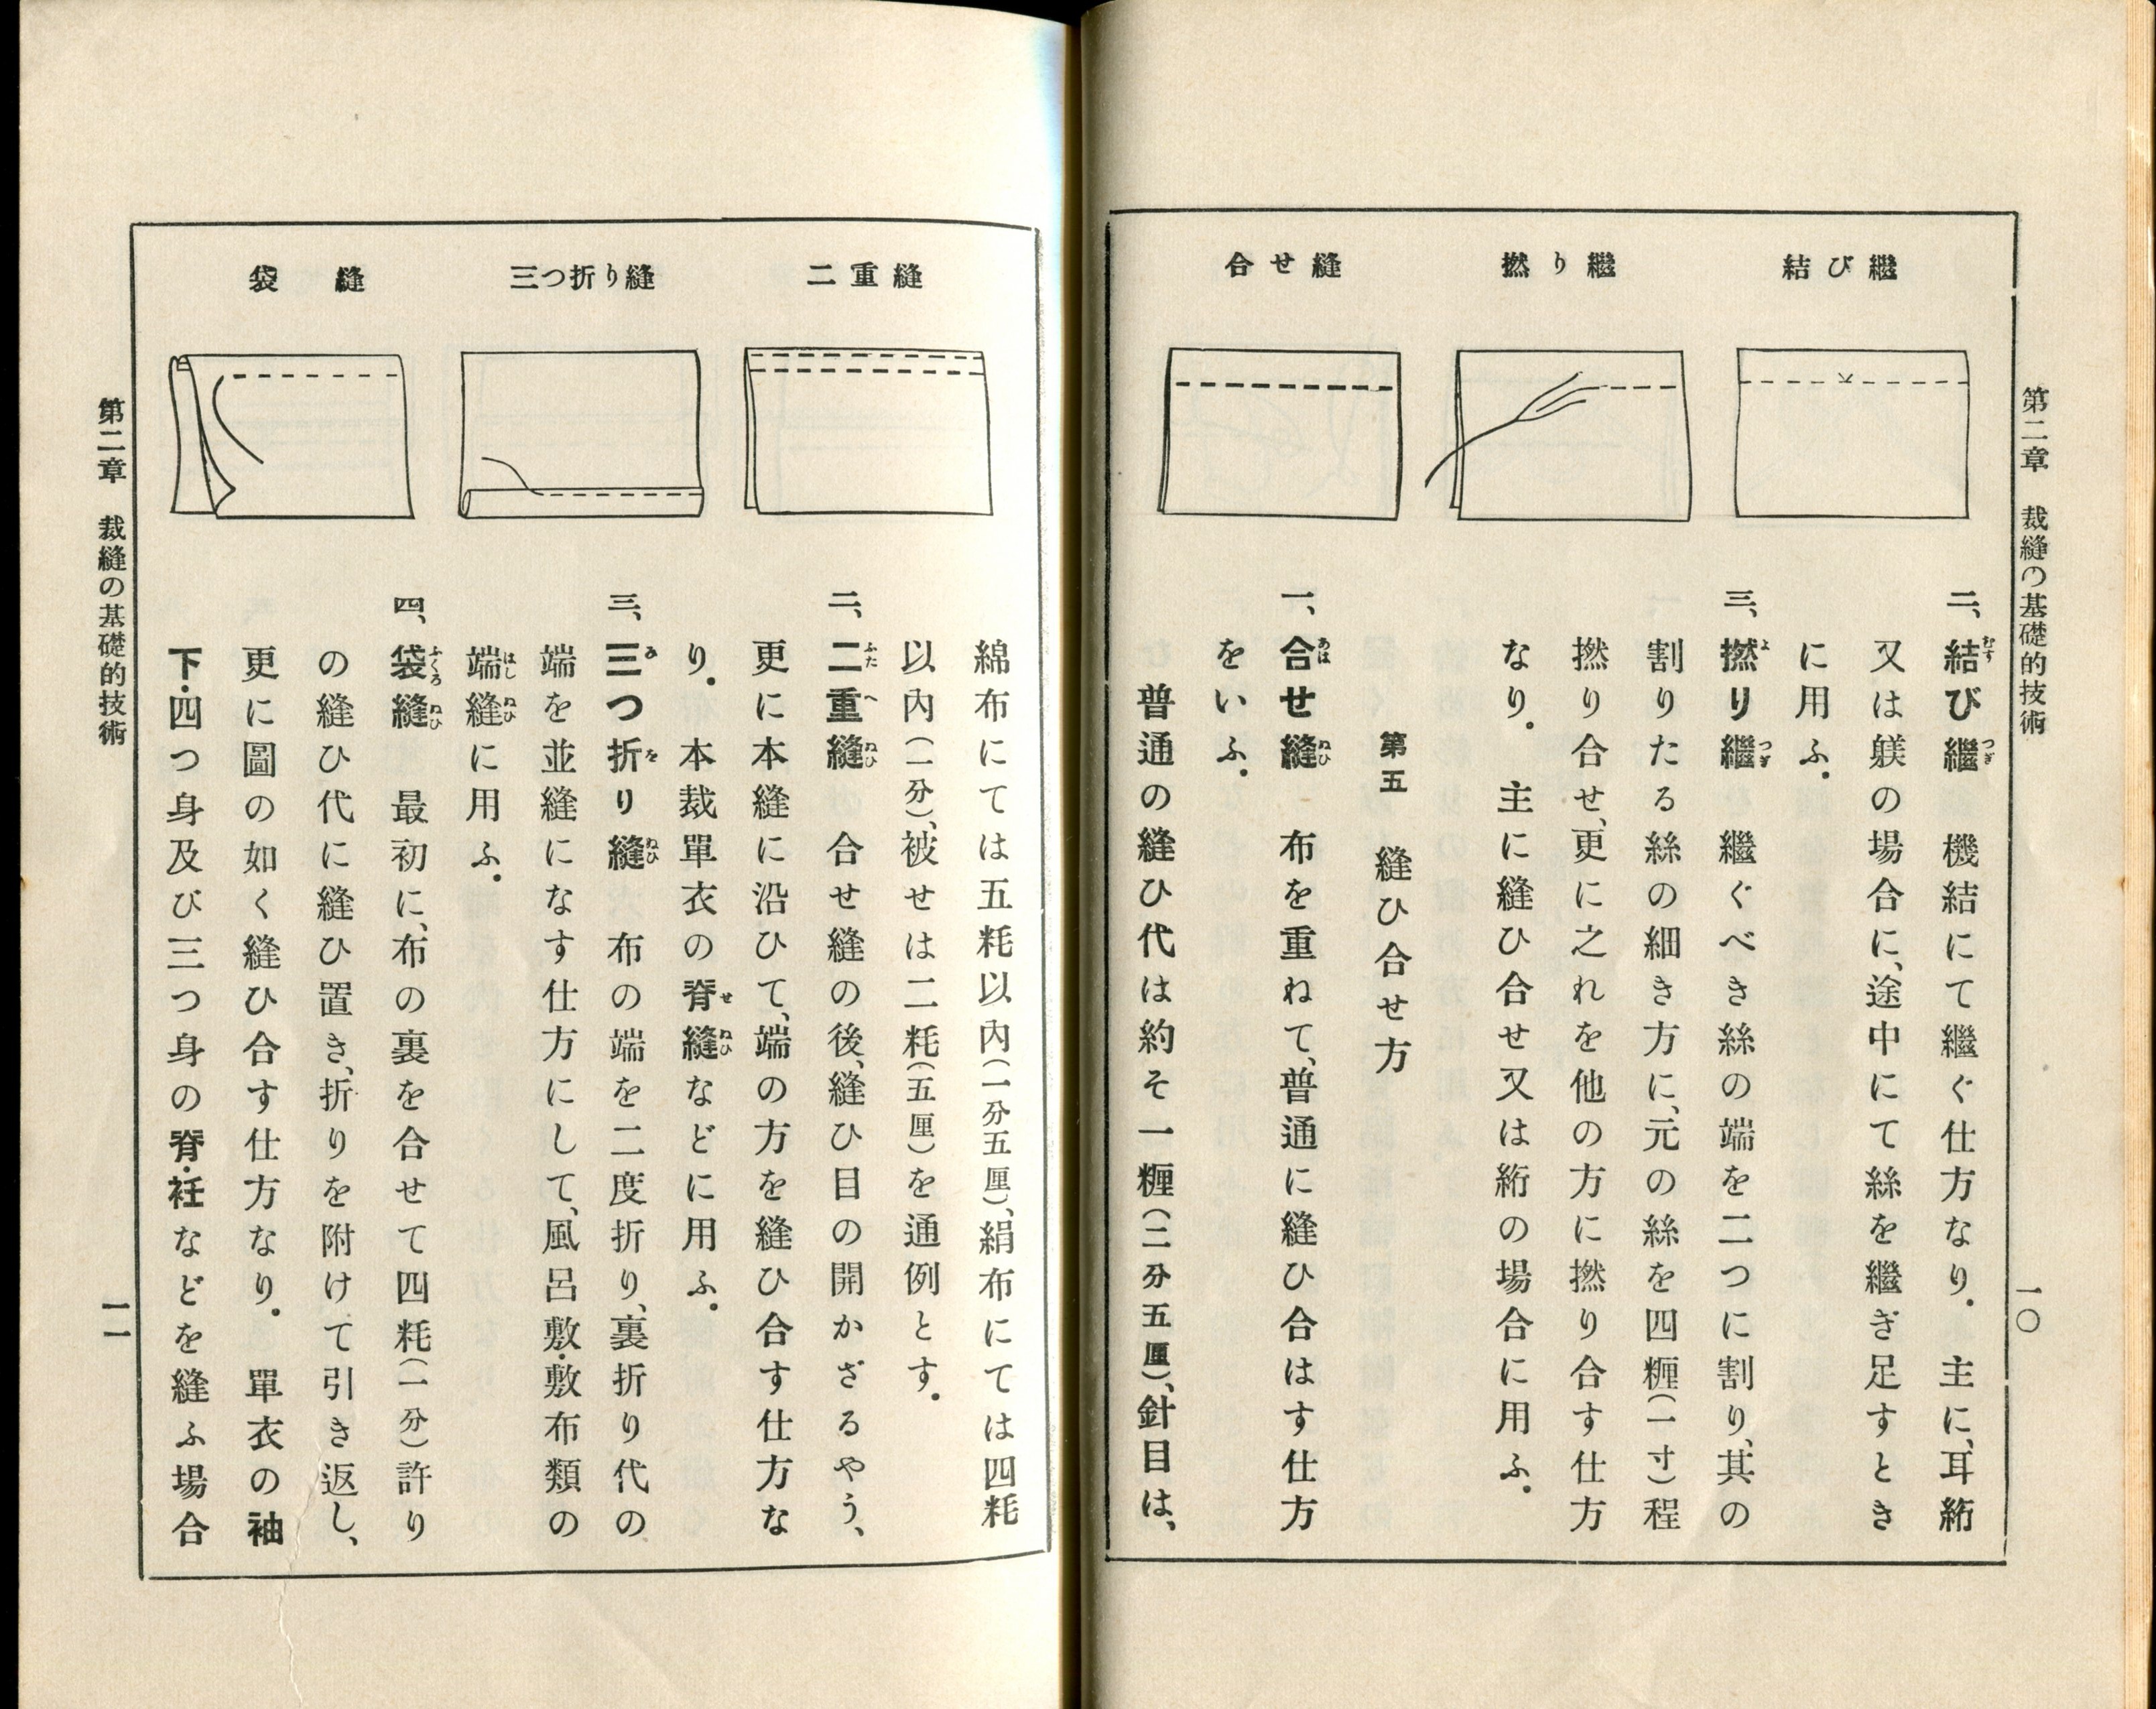 第二章 裁縫の基礎的技術
一〇
結び繼
撚り繼
合せ縫
二、結び繼 機結にて繼ぐ仕方なり。 主に、耳絎
又は躾の場合に、途中にて絲を繼ぎ足すとき
に用ふ。
三、撚り繼 繼ぐべき絲の端を二つに割り、其の
割りたる絲の細き方に、元の絲を四糎(一寸)程
撚り合せ、更に之れを他の方に撚り合す仕方
なり。 主に縫ひ合せ又は絎の場合に用ふ。
第五 縫ひ合せ方
一、合せ縫 布を重ねて、普通に縫ひ合はす仕方
をいふ。
普通の縫ひ代は約そ一糎(二分五厘)、針目は、
二重縫
三つ折り縫
袋縫
綿布にては五粍以內(一分五厘)、絹布にては四粍
以內(一分)、被せは二粍(五厘)を通例とす。
二、二重縫 合せ縫の後、縫ひ目の開かざるやう、
更に本縫に沿ひて、端の方を縫ひ合す仕方な
り。 本裁單衣の脊縫などに用ふ。
三、三つ折り縫 布の端を二度折り、裏折り代の
端を並縫になす仕方にして、風呂敷・敷布類の
端縫に用ふ。
四、袋縫 最初に、布の裏を合せて四粍(一分)許り
の縫ひ代に縫ひ置き、折りを附けて引き返し、
更に圖の如く縫ひ合す仕方なり。 單衣の袖
下・四つ身及び三つ身の脊・衽などを縫ふ場合
第二章 裁縫の基礎的技術
一一